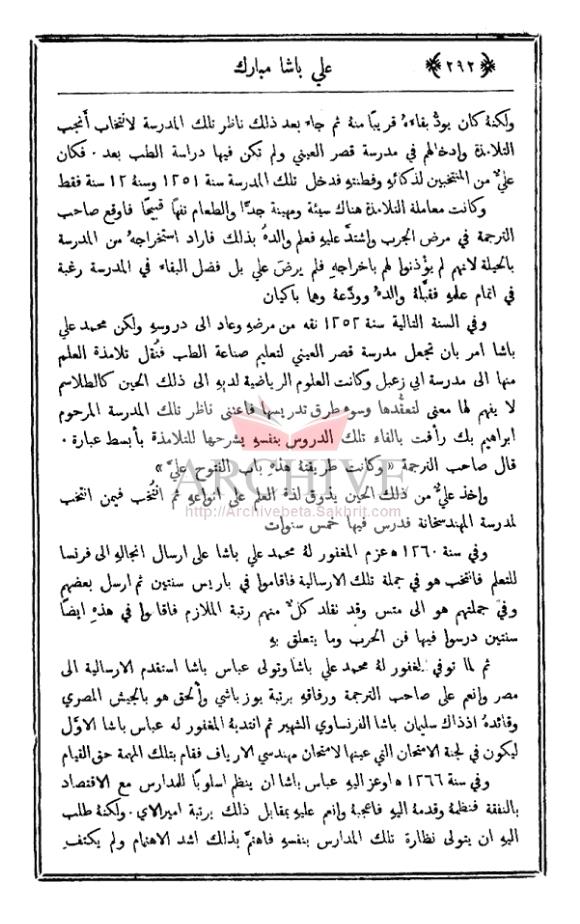 ﴿٢٩٢﴾ علي باشا مبارك
ولكنهُ كان يودُّ بقاءهُ قريبًا منهُ ثم جاء بعد ذلك ناظر تلك المدرسة لانتخاب أَنجب
التلامذة وإدخالهم في مدرسة قصر العيني ولم تكن فيها دراسة الطب بعد . فكان
عليٌّ من المنتخبين لذكائهِ وفطنتهِ فدخل تلك المدرسة سنة ١٢٥١ وسنهُ ١٢ سنة فقط
وكانت معاملة التلامذة هناك سيئة ومهينة جدًّا والطعام تفهًا قبيحًا فاوقع صاحب
الترجمة في مرض الجرب واشتدَّ عليهِ فعلم والدهُ بذلك فاراد استخراجهُ من المدرسة
بالحيلة لانهم لم يؤْذنوا لهم باخراجهِ فلم يرضَ علي بل فضل البقاء في المدرسة رغبة
في اتمام علمهِ فقبَّلهُ والدهُ وودَّعهُ وهما باكيان
وفي السنة التالية سنة ١٢٥٢ نقه من مرضهِ وعاد الى دروسهِ ولكن محمد علي
باشا امر بان تجعل مدرسة قصر العيني لتعليم صناعة الطب فنُقل تلامذة العلم
منها الى مدرسة ابي زعبل وكانت العلوم الرياضية لديهِ الى ذلك الحين كالطلاسم
لا يفهم لها معنى لتعقُّدها وسوء طرق تدريسها فاعتنى ناظر تلك المدرسة المرحوم
ابراهيم بك رأفت بالقاء تلك الدروس بنفسهِ يشرحها للتلامذة بأبسط عبارة .
قال صاحب الترجمة «وكانت طريقتهُ هذهِ باب الفتوح عليَّ»
ARCHIVE
واخذ عليٌّ من ذلك الحين يذوق لذة العلم على انواعهِ ثم انتُخب فيمن انتخب
http://Archivebeta.Sakhrit.com
لمدرسة المهندسخانة فدرس فيها خمس سنوات
وفي سنة ١٢٦٠ ه عزم المغفور لهُ محمد علي باشا على ارسال انجالهِ الى فرنسا
للتعلم فانتخب هو في جملة تلك الارسالية فاقاموا في باريس سنتين ثم ارسل بعضهم
وفي جملتهم هو الى متس وقد تقلد كلٌّ منهم رتبة الملازم فاقاموا في هذهِ ايضًا
سنتين درسوا فيها فن الحرب وما يتعلق بهِ
ثم لما توفي المغفور لهُ محمد علي باشا وتولى عباس باشا استقدم الارسالية الى
مصر وانعم على صاحب الترجمة ورفاقهِ برتبة يوزباشي وأُلحق هو بالجيش المصري
وقائدهُ اذذاك سليمان باشا الفرنساوي الشهير ثم انتدبهُ المغفور له عباس باشا الاوَّل
ليكون في لجنة الامتحان التي عينها لامتحان مهندسي الارياف فقام بتلك المهمة حق القيام
وفي سنة ١٢٦٦ ه اوعز اليهِ عباس باشا ان ينظم اسلوبًا للمدارس مع الاقتصاد
بالنفقة فنظمهُ وقدمهُ اليهِ فاعجبهُ وانعم عليهِ بمقابل ذلك برتبة اميرالاي . ولكنهُ طلب
اليهِ ان يتولى نظارة تلك المدارس بنفسهِ فاهتمَّ بذلك اشد الاهتمام ولم يكتفِ